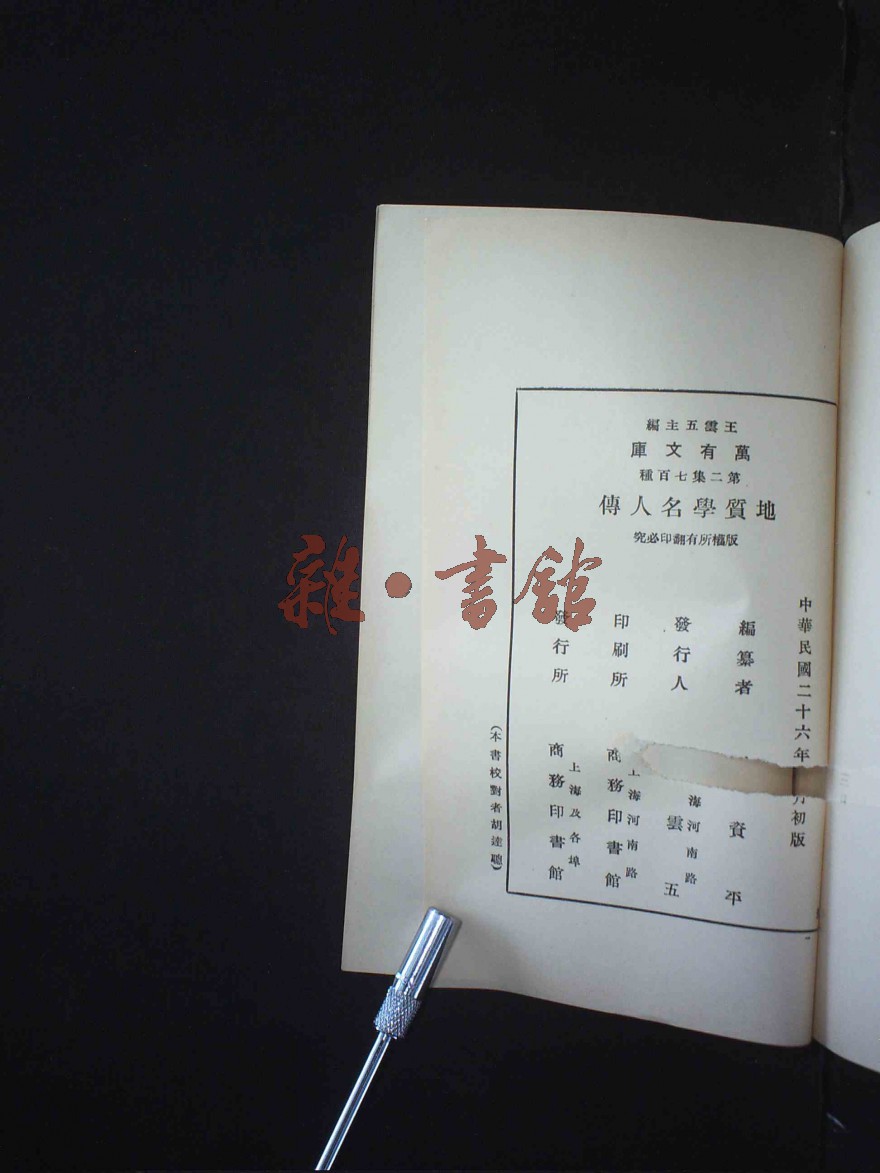 王雲五主編
萬有文庫
第二集七百種
地質學名人傳
版權所有翻印必究
中華民國二十六年 月初版
編纂者 資平
發行人 雲五
海河南路
印刷所 商務印書館
上海河南路
發行所 商務印書館
上海及各埠
(本書校對者胡達聰)
雜·書館